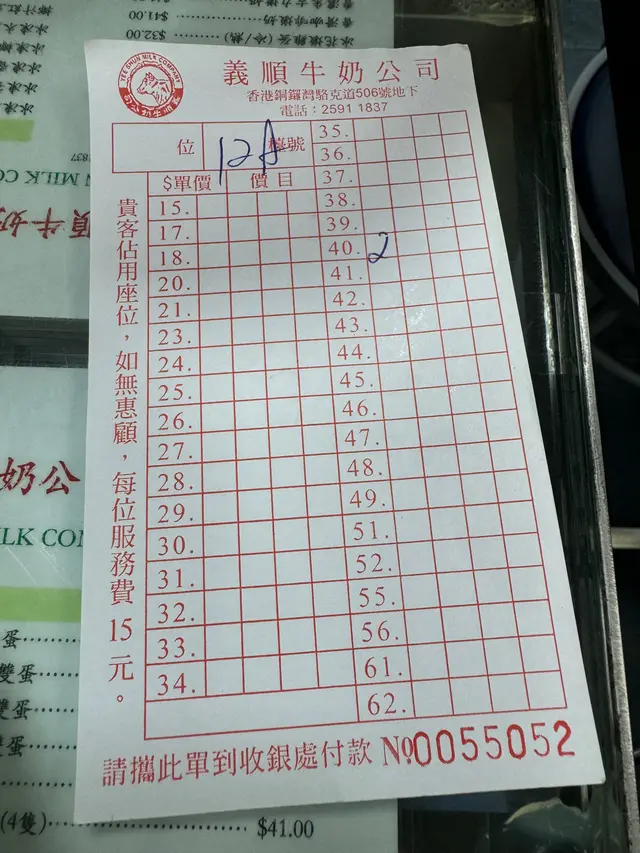 義順牛奶公司
YEE SHUN MILK COMPANY
香港銅鑼灣駱克道506號地下
電話：2591 1837
位 12A 檯號
$單價 價目
15.
17.
18.
20.
21.
23.
24.
25.
26.
27.
28.
29.
30.
31.
32.
33.
34.
35.
36.
37.
38.
39.
40. 2
41.
42.
43.
44.
45.
46.
47.
48.
49.
51.
52.
55.
56.
61.
62.
貴客佔用座位，如無惠顧，每位服務費15元。
請攜此單到收銀處付款 No.0055052
$41.00
$32.00
MILK CO
順牛奶
奶公
ILK CO
蛋
雙蛋
雙蛋
雙蛋
(4隻) $41.00